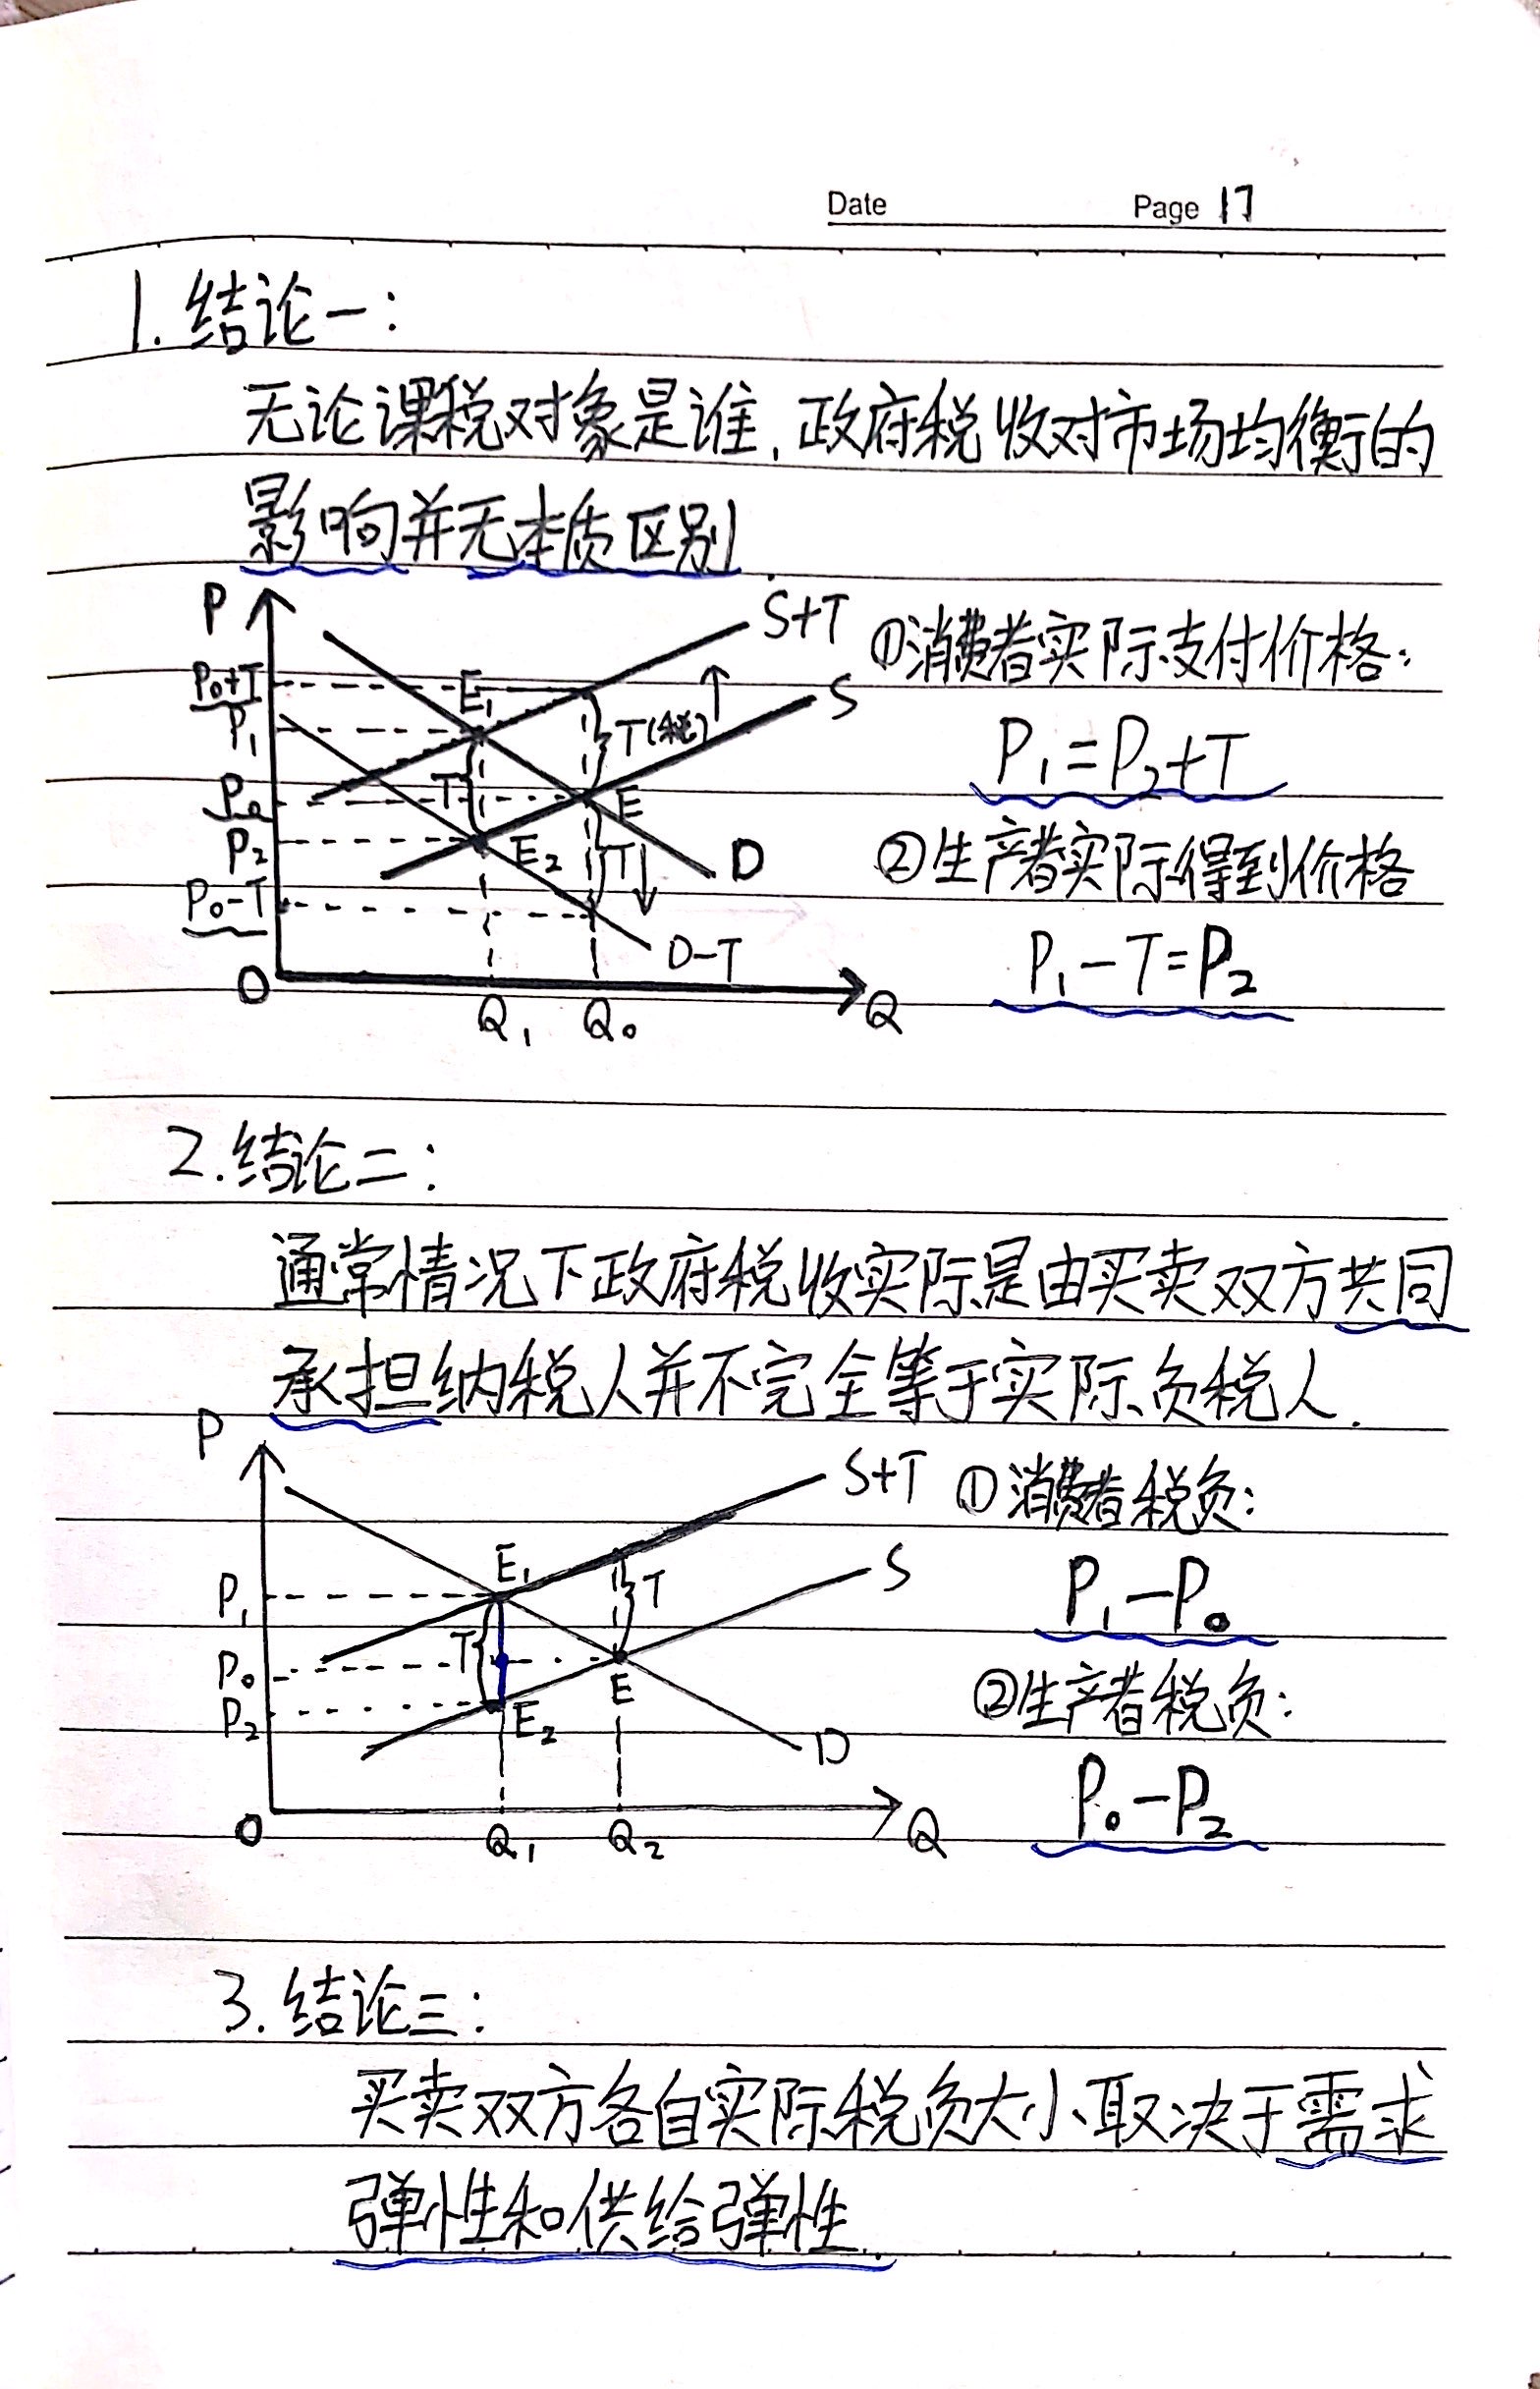 Date Page 17
1. 结论一:
无论课税对象是谁,政府税收对市场均衡的
影响并无本质区别.
P
S+T
①消费者实际支付价格:
P₀+T
E₁
S
P₁
T(税)
P₁=P₂+T
T
P₀
E
P₂
E₂
T
D
②生产者实际得到价格
P₀-T
D-T
P₁-T=P₂
O
Q₁ Q₀ Q
2.结论二:
通常情况下政府税收实际是由买卖双方共同
承担纳税人并不完全等于实际负税人.
P
S+T
①消费者税负:
E₁
S
P₁
T
P₁-P₀
T
P₀
E
②生产者税负:
P₂
E₂
D
P₀-P₂
O
Q₁ Q₂ Q
3.结论三:
买卖双方各自实际税负大小取决于需求
弹性和供给弹性.